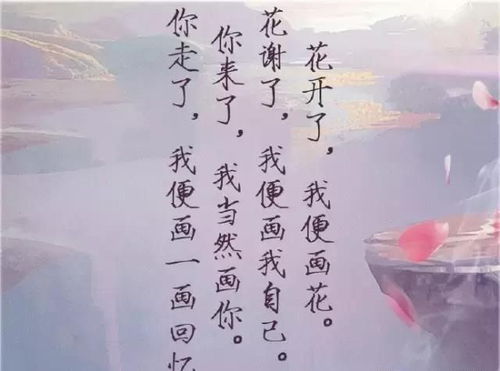 花开了，我便画花。
花谢了，我便画我自己。
你来了，我当然画你。
你走了，我便画一画回忆